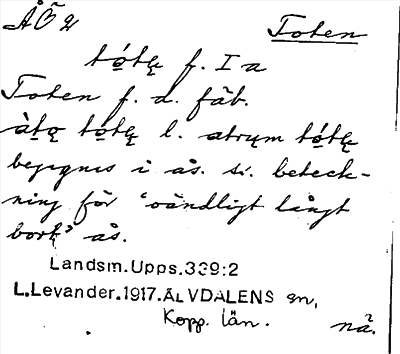 ÅÖU Toten
tó̠tę f. I a
Toten f. d. fäb.
àtǫ tó̠tę l. atrum tó̠tę
begagnas i ås. s. beteck-
ning för 'oändligt långt
bort' ås.
Landsm.Upps.339:2
L.Levander.1917.ÄLVDALENS sn,
Kopp. län. nä.